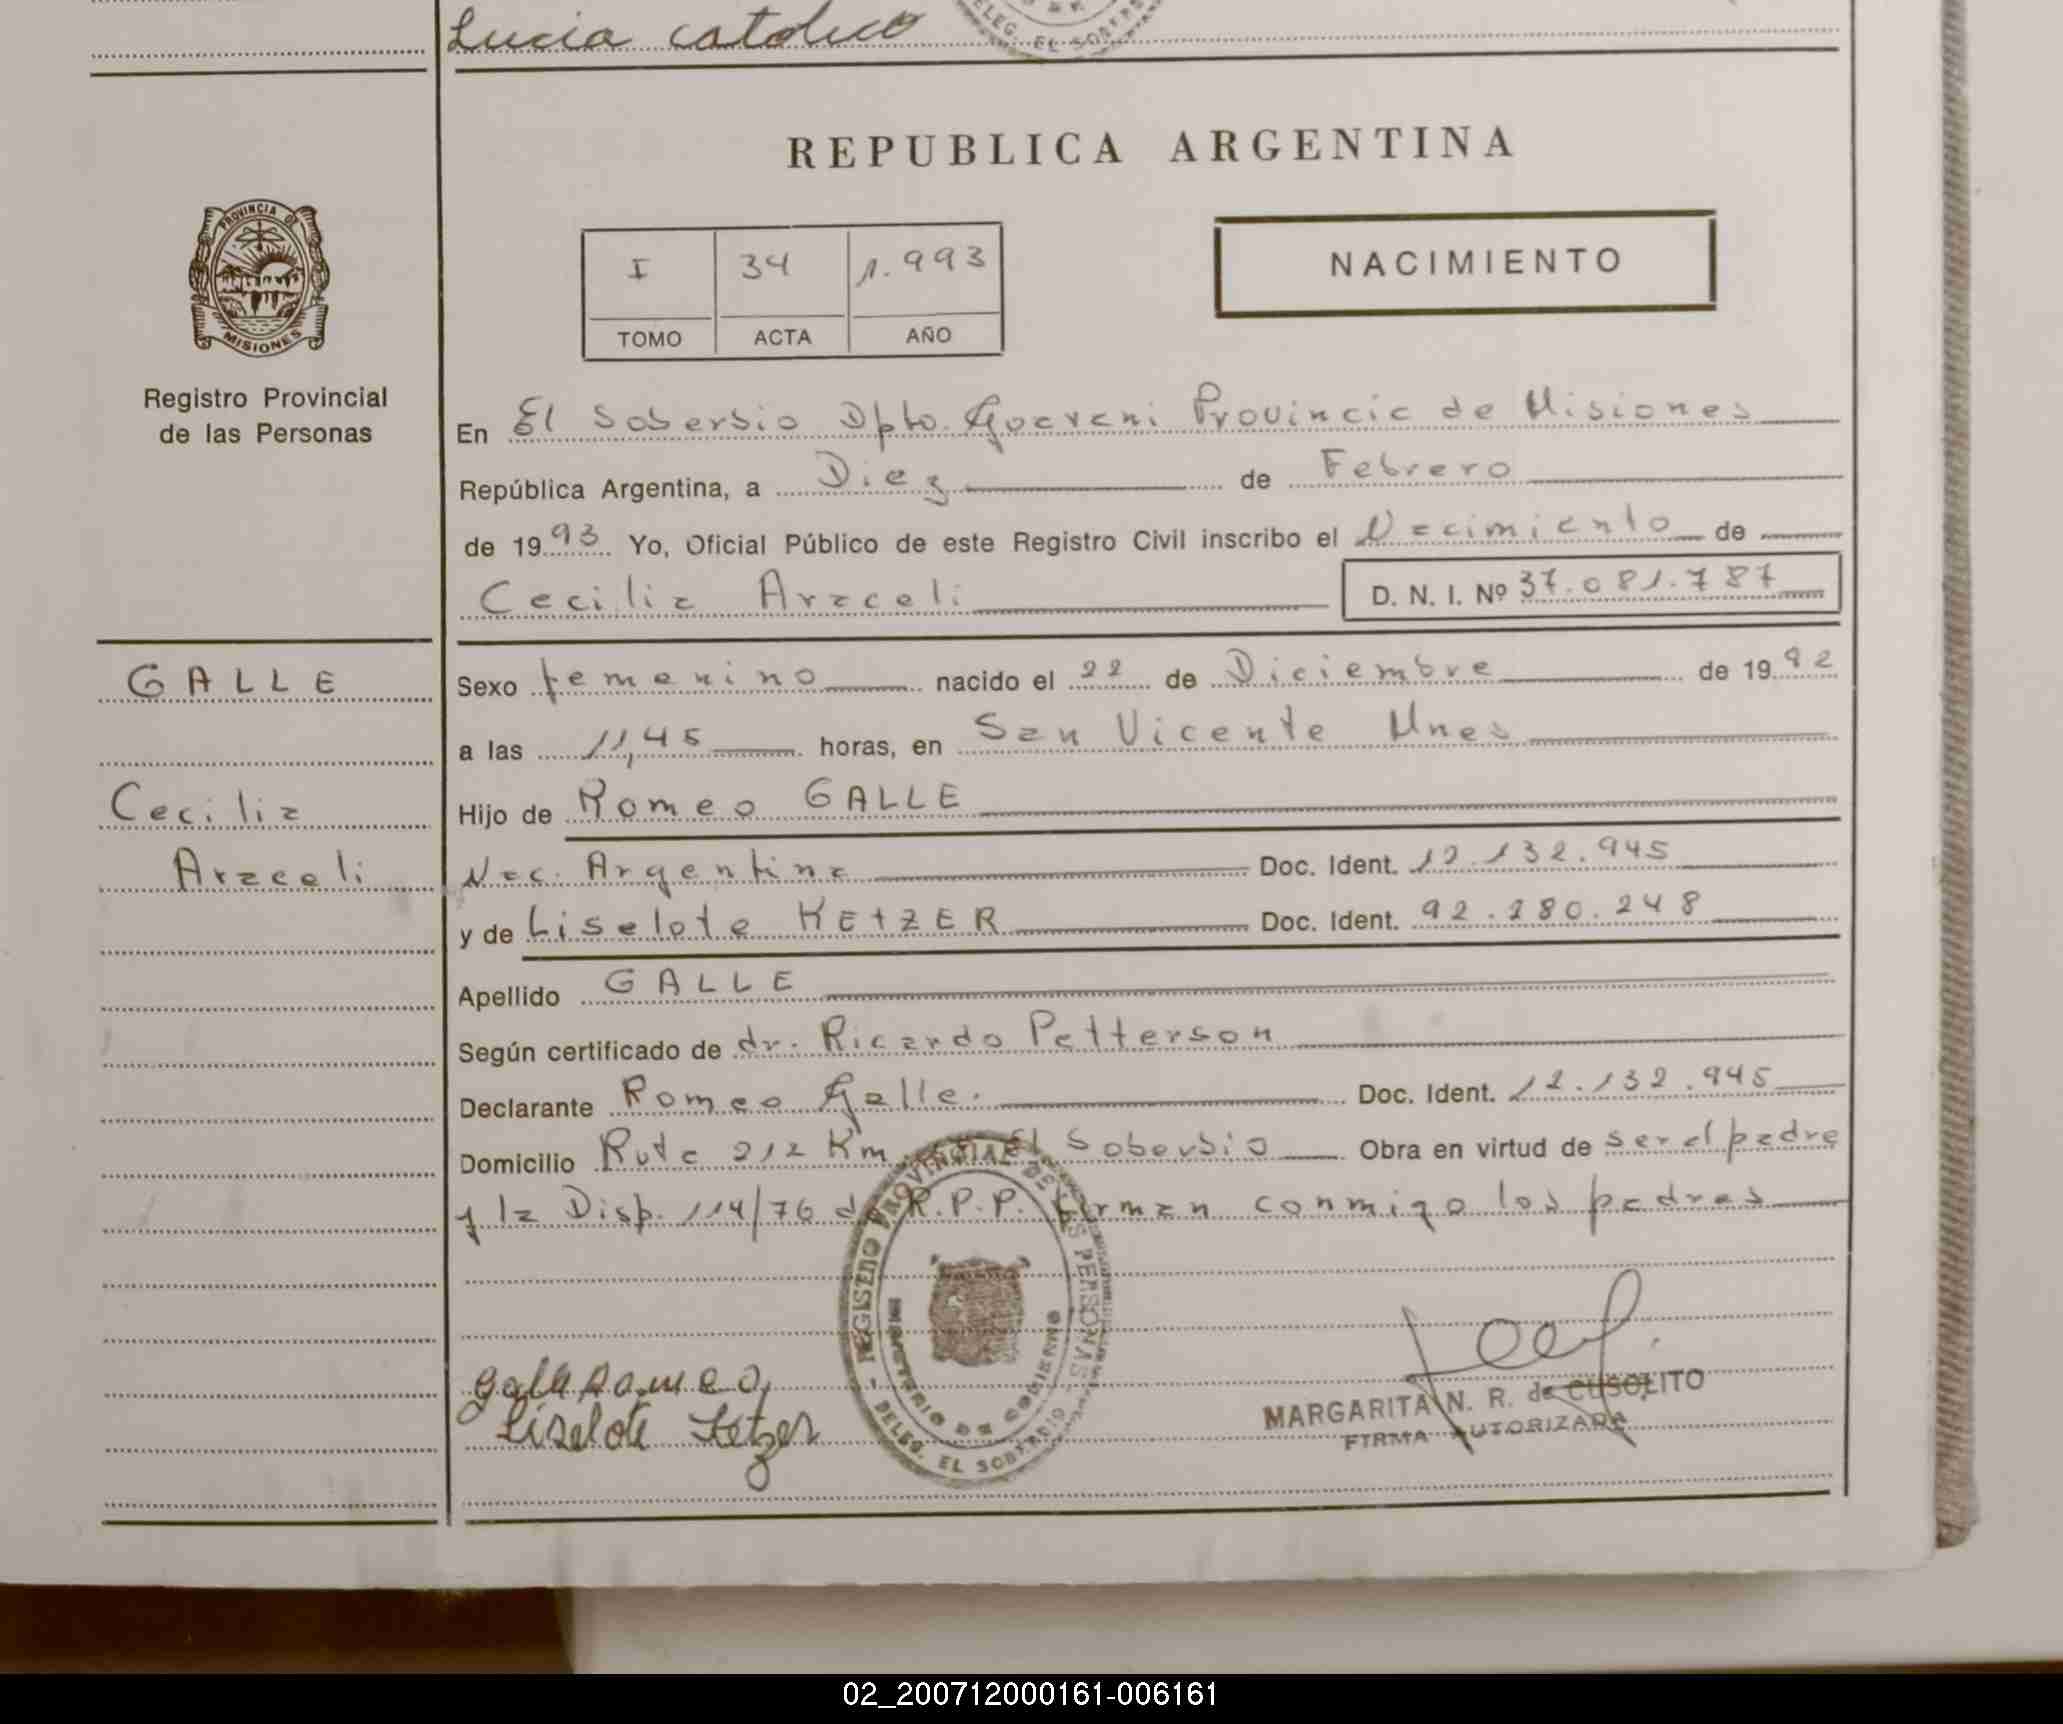 Lucia catolico
DELEG. EL SOBERBIO
REPUBLICA ARGENTINA
PROVINCIA DE
MISIONES
I 34 1.993
TOMO ACTA AÑO
NACIMIENTO
Registro Provincial
de las Personas
En El Soberbio Dpto. Guarani Provincia de Misiones
República Argentina, a Diez de Febrero
de 1993 Yo, Oficial Público de este Registro Civil inscribo el Nacimiento de
Cecilia Araceli D. N. I. Nº 37.081.787
GALLE
Cecilia
Araceli
Sexo femenino nacido el 22 de Diciembre de 1992
a las 11,45 horas, en San Vicente Mnes
Hijo de Romeo GALLE
Nac. Argentina Doc. Ident. 12.132.945
y de Liselote KEtZER Doc. Ident. 92.280.248
Apellido GALLE
Según certificado de dr. Ricardo Petterson
Declarante Romeo Galle. Doc. Ident. 12.132.945
Domicilio Ruta 212 Km El Soberbio Obra en virtud de ser el padre
y la Disp. 114/76 d R.P.P. firman conmigo los padres
REGISTRO PROVINCIAL DE LAS PERSONAS
MINISTERIO DE GOBIERNO
DELEG. EL SOBERBIO
Galle Romeo
Liselote Ketzer
MARGARITA N. R. de CUSOLITO
FIRMA AUTORIZADA
02_200712000161-006161